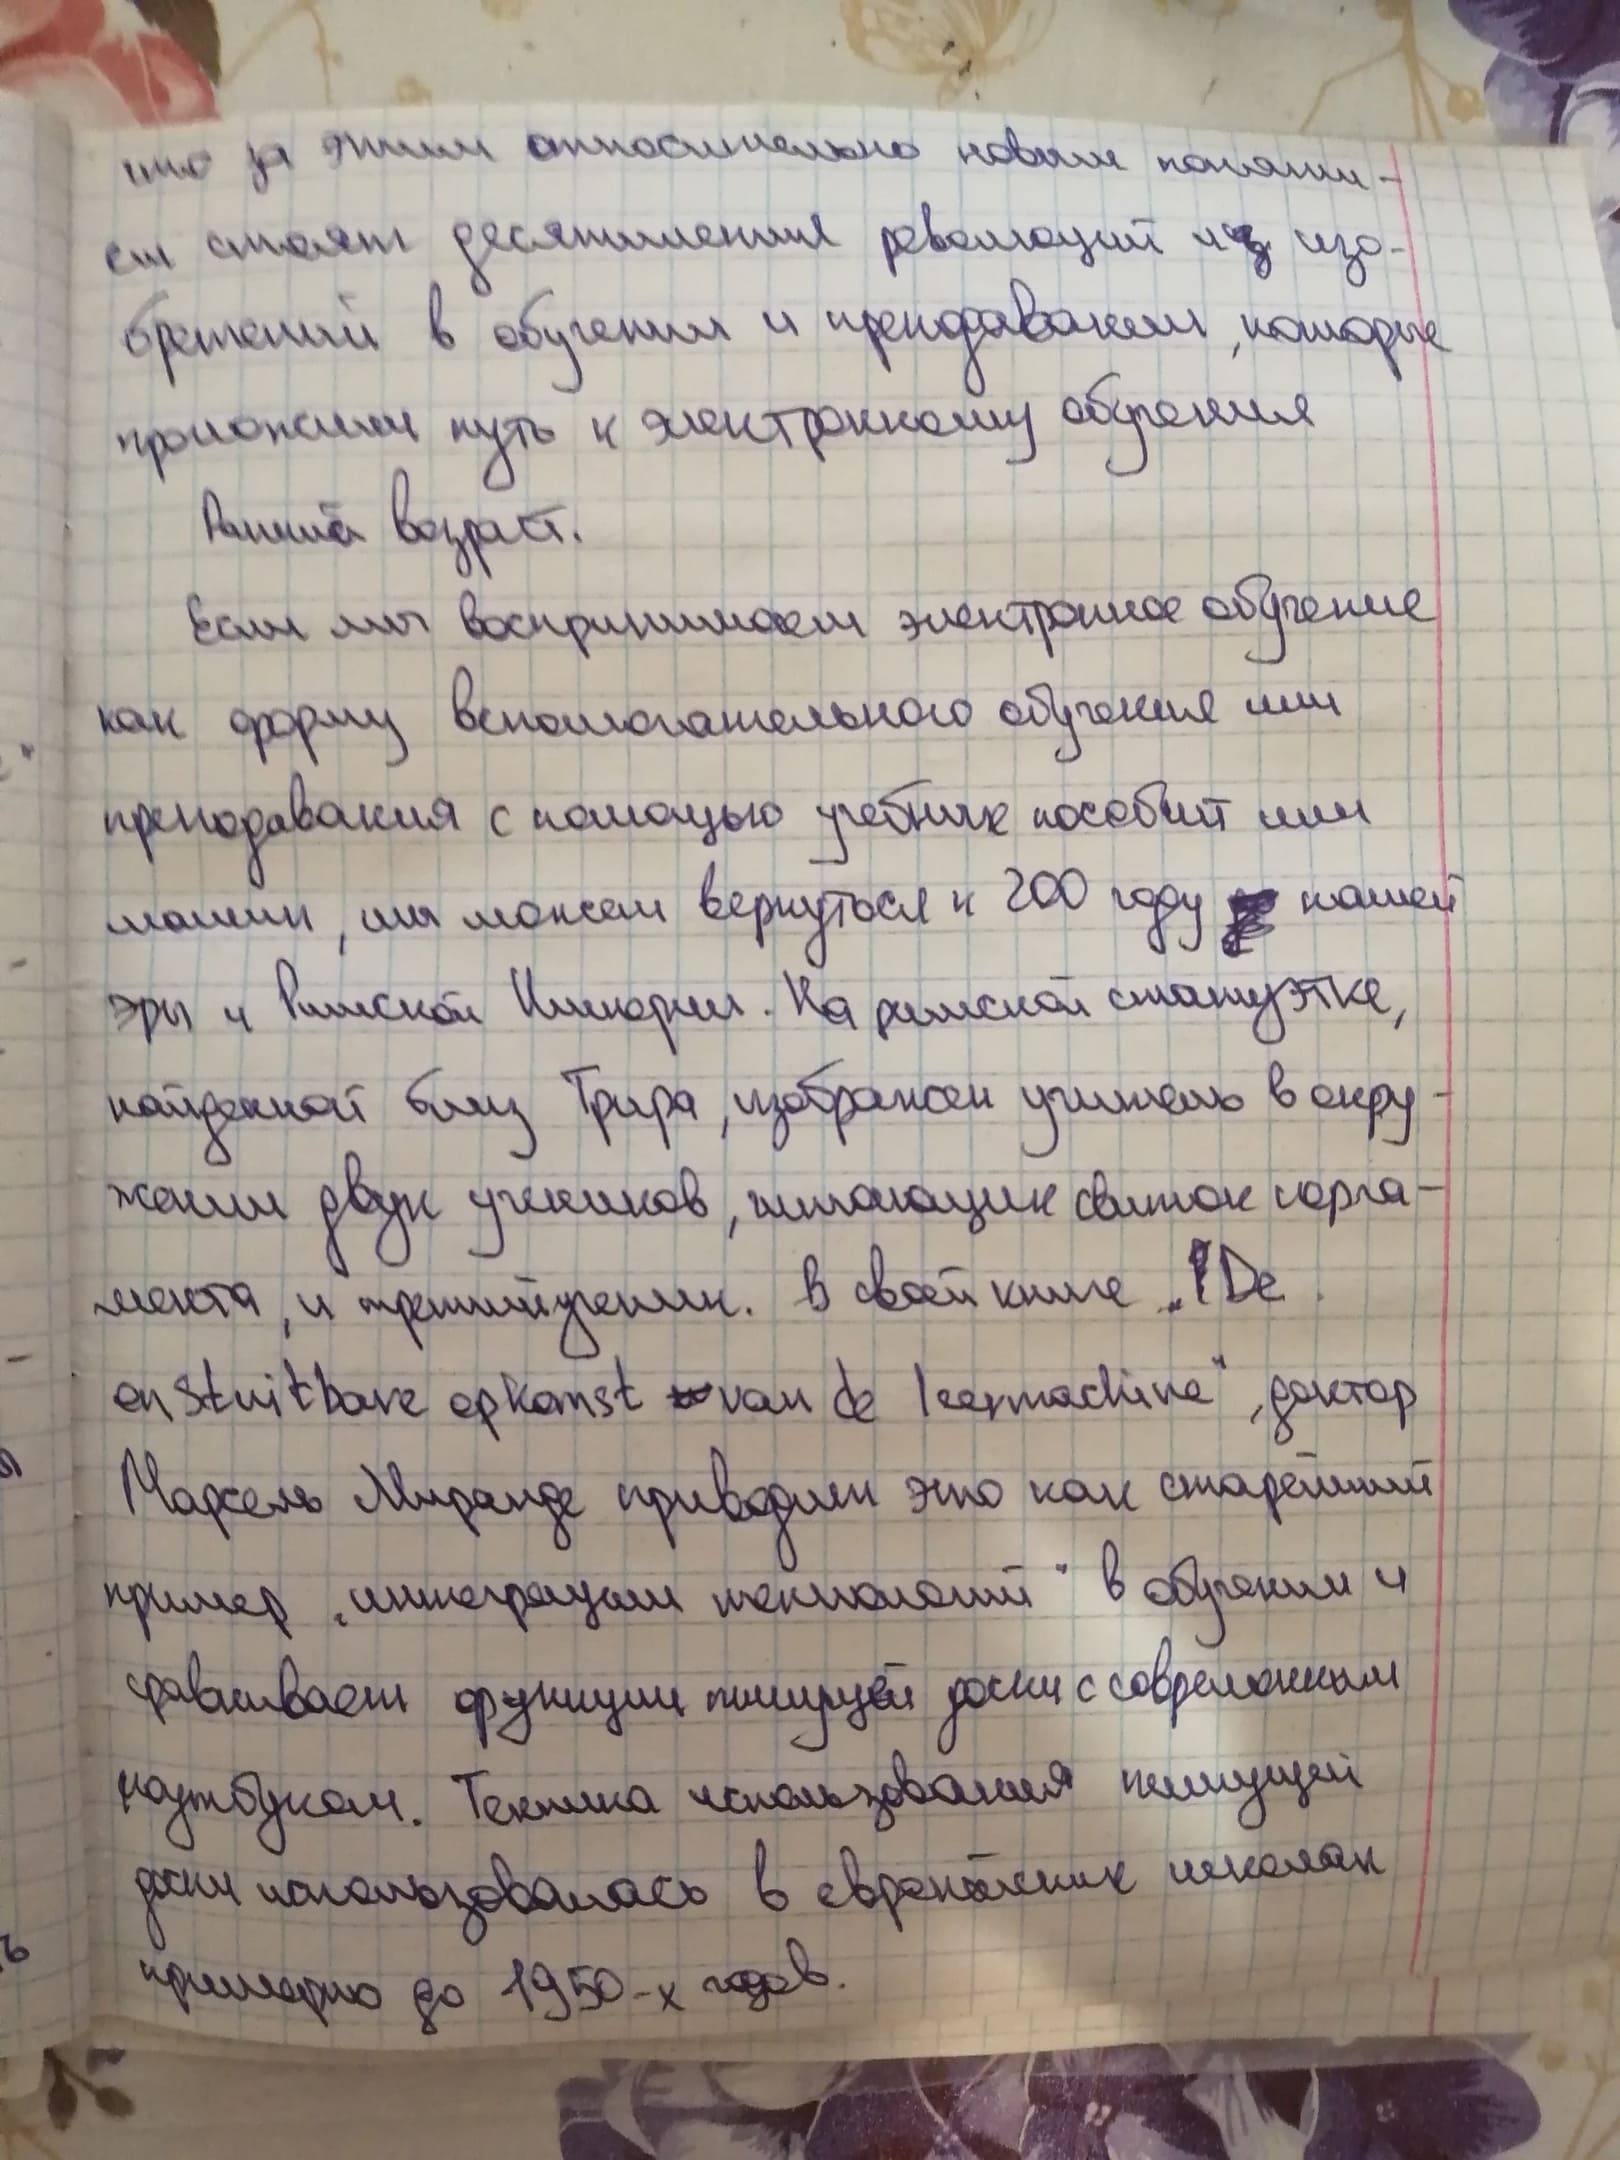 что за этим относительно новым поняти-
ем стоят десятилетия революций из изо-
бретений в обучении и преподавании, которые
проложили путь к электронному обучения
Ранний возраст.
Если мы воспринимаем электронное обучение
как форму вспомогательного обучения или
преподавания с помощью учебник пособий или
машин, мы можем вернуться к 200 году нашей
эры и Римской Империи. На римской статуэтке,
найденной близ Трира, изображен учитель в окру-
жении двух учеников, читающих свиток перга-
мента, и третий ученик. В своей книге „De
onstuitbare opkomst van de leermachine“, доктор
Марсель Миранде приводит это как старейший
пример „интеграции технологий“ в обучении и
сравнивает функции пишущей доски с современным
ноутбуком. Техника использования пишущей
доски использовалась в европейских школах
примерно до 1950-х годов.